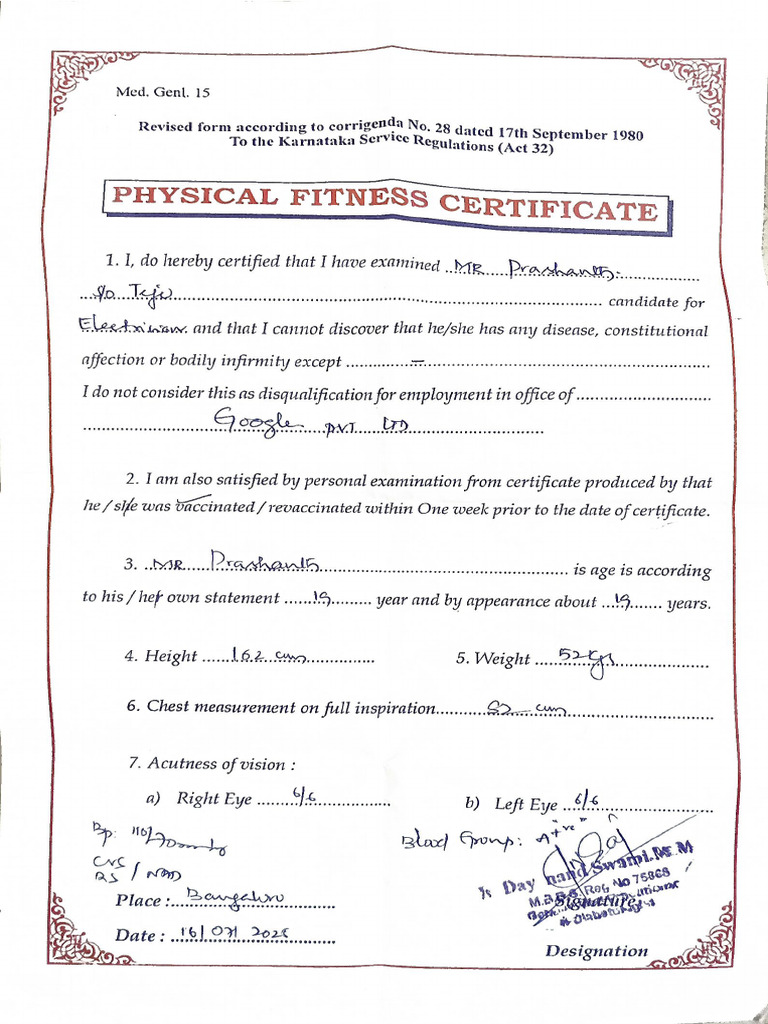 Med. Genl. 15
Revised form according to corrigenda No. 28 dated 17th September 1980
To the Karnataka Service Regulations (Act 32)
PHYSICAL FITNESS CERTIFICATE
1. I, do hereby certified that I have examined MR Prashanth
s/o Teju candidate for
and that I cannot discover that he/she has any disease, constitutional
affection or bodily infirmity except –
I do not consider this as disqualification for employment in office of
Google PVT LTD
2. I am also satisfied by personal examination from certificate produced by that
he / she was vaccinated / revaccinated within One week prior to the date of certificate.
3. MR Prashanth is age is according
to his / her own statement 19 year and by appearance about 19 years.
4. Height 162 cm 5. Weight 52 kgs
6. Chest measurement on full inspiration 82 cm
7. Acutness of vision :
a) Right Eye 6/6 b) Left Eye 6/6
Bp: 110/70 Blood Group: A+ve
CNS
RS / NAD
Place :
Date : 16/07/2025
M.B.B.S. Reg No
Signature
Designation